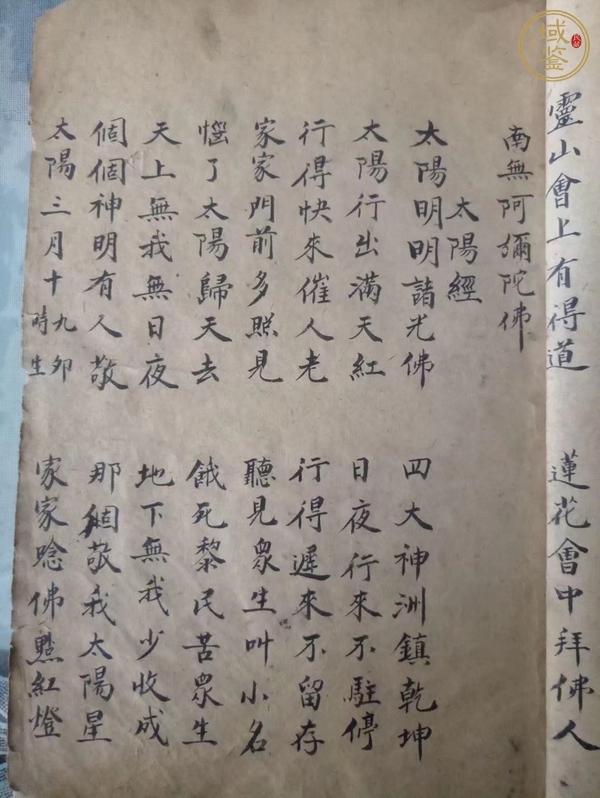 靈山會上有得道 蓮花會中拜佛人
南無阿彌陀佛
太陽經
太陽明明諸光佛 四大神洲鎮乾坤
太陽行出滿天紅 日夜行來不駐停
行得快來催人老 行得遲來不留存
家家門前多照見 聽見眾生叫小名
惱了太陽歸天去 餓死黎民苦眾生
天上無我無日夜 地下無我少收成
個個神明有人敬 那個敬我太陽星
太陽三月十九卯時生 家家唸佛點紅燈
域鑒